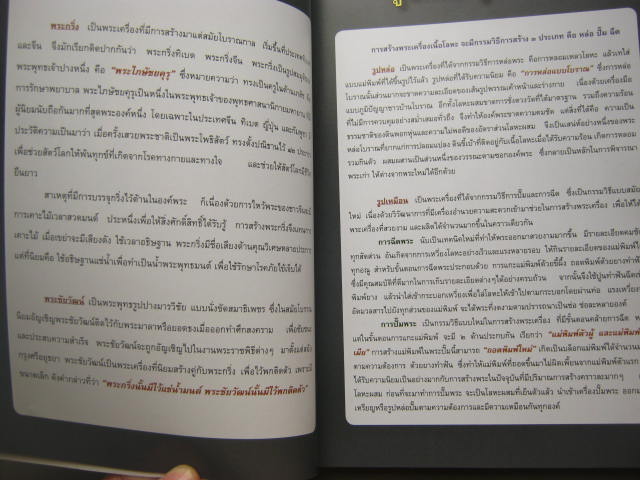 พระกริ่ง เป็นพระเครื่องที่มีการสร้างมาแต่สมัยโบราณกาล เริ่มขึ้นที่ประเทศ
และจีน จึงมักเรียกติดปากกันว่า พระกริ่งทิเบต พระกริ่งจีน พระกริ่งเป็นรูป
พระพุทธเจ้าปางหนึ่ง คือ "พระไภษัชยคุรุ" ซึ่งหมายความว่า ทรงเป็นครูในด้าน
การรักษาพยาบาล พระไภษัชยคุรุเป็นหนึ่งในพระพุทธเจ้าของพุทธศาสนานิกายมหายาน
ผู้นิยมนับถือกันมากที่สุดพระองค์หนึ่ง โดยเฉพาะในประเทศจีน ทิเบต ญี่ปุ่น และ
ประวัติความเป็นมาว่า เมื่อครั้งเสวยพระชาติเป็นพระโพธิสัตว์ ทรงตั้งปณิธานไว้ ๑๒
เพื่อช่วยสัตว์โลกให้พ้นทุกข์ที่เกิดจากโรคทางกายและทางใจ และช่วยให้สัตว์โลกมี
ยืนยาว
สาเหตุที่มีการบรรจุกริ่งไว้ด้านในองค์พระ ก็เนื่องด้วยการไหว้พระของชาวจีน
การเคาะไม้เวลาสวดมนต์ ประหนึ่งเพื่อให้สิ่งศักดิ์สิทธิ์ได้รับรู้ การสร้างพระกริ่งจึง
เคาะไม้ เมื่อเขย่าจะมีเสียงดัง ใช้เวลาอธิษฐาน พระกริ่งมีชื่อเสียงด้านคุณวิเศษหลาย
แต่ที่นิยมคือ ใช้อธิษฐานแช่น้ำเพื่อทำเป็นน้ำพระพุทธมนต์ เพื่อใช้รักษาโรคภัยไข้เจ็บได้
พระชัยวัฒน์ เป็นพระพุทธรูปปางมารวิชัย แบบนั่งขัดสมาธิเพชร ซึ่งในสมัยโบราณ
นิยมอัญเชิญพระชัยวัฒน์ติดไว้กับพระมาลาหรือยอดธงเมื่อออกทำศึกสงคราม เพื่อ
และประสบความสำเร็จ พระชัยวัฒน์จะถูกอัญเชิญไปในงานพระราชพิธีต่างๆ มาตั้งแต่
กรุงศรีอยุธยา พระชัยวัฒน์เป็นพระเครื่องที่นิยมสร้างคู่กับพระกริ่ง เพื่อไว้พกติดตัว
ขนาดเล็ก ดังคำกล่าวที่ว่า "พระกริ่งนั้นมีไว้แช่น้ำมนต์ พระชัยวัฒน์นั้นมีไว้พกติดตัว"
การสร้างพระเครื่องเนื้อโลหะ จะมีกรรมวิธีการสร้าง ๓ ประเภท คือ หล่อ ปั๊ม ฉีด
รูปหล่อ เป็นพระเครื่องที่ได้จากกรรมวิธีการหล่อพระ คือการหลอมเหลวโลหะ แล้วเทใส่
แบบแม่พิมพ์ที่ได้ขึ้นรูปไว้แล้ว รูปหล่อที่ได้รับความนิยม คือ "การหล่อแบบโบราณ" ซึ่งการหล่อ
โบราณนั้นส่วนมากจะขาดความละเอียดของเส้นรูปพรรณเค้าหน้าและร่างกาย เนื่องด้วยเครื่องมือ
แบบภูมิปัญญาชาวบ้านโบราณ อีกทั้งโลหะผสมขาดการชั่งตวงวัดที่ได้มาตราฐาน รวมถึงความร้อน
ที่ไม่มีการควบคุมอย่างสม่ำเสมอทั่วถึง จึงทำให้องค์พระขาดความคมชัด แต่สิ่งที่ได้คือ ความเป็น
ธรรมชาติของดินพอกหุ่นและความไม่พอดีของอัตราส่วนโลหะผสม จึงเป็นเสน่ห์อย่างหนึ่งของพระ
หล่อโบราณที่ยากแก่การปลอมแปลง
รวมกันตัว ผสมผสานเป็นส่วนหนึ่งของวรรณะตามซอกองค์พระ ซึ่งกลายเป็นหลักในการพิจารณา
พระเก่า ให้ต่างจากพระใหม่ได้อีกด้วย
รูปเหมือน เป็นพระเครื่องที่ได้จากกรรมวิธีการปั๊มและการฉีด ซึ่งเป็นกรรมวิธีแบบสมัย
ใหม่ เนื่องด้วยวิวัฒนาการที่มีเครื่องอำนวยความสะดวกเข้ามาช่วยในการสร้างพระเครื่อง เพื่อให้ได้
พระเครื่องที่สวยงาม และผลิตได้จำนวนมากขึ้นในคราวเดียวกัน
การฉีดพระ นับเป็นเทคนิคใหม่ที่ทำให้พระออกมาสวยงามมากขึ้น มีรายละเอียดคมชัด
ทุกสัดส่วน อันเกิดจากการเหวี่ยงโลหะอย่างเร็วและแรงหลายรอบ ให้กินรายละเอียดของแม่พิมพ์ได้
ทุกอณู สำหรับขั้นตอนการฉีดพระประกอบด้วย การแกะแม่พิมพ์ด้วยขี้ผึ้ง ถอดพิมพ์ด้วยยาง
ซึ่งมีคุณสมบัติที่ดีมากในการเก็บรายละเอียดต่างๆได้อย่างครบถ้วน จากนั้นจึงใช้ปูน
พิมพ์ยาง แล้วนำไปเข้ากระบอกเหวี่ยงเพื่อใส่โลหะให้เข้าไปตามกระบอกโดยผ่านท่อ แรงเหวี่ยง
อัดมวลสารไปยังทุกส่วนของแม่พิมพ์ จะได้พระทั้งหมดตามปรารถนาเป็นช่อ ช่อละหลายองค์
การปั๊มพระ เป็นกรรมวิธีแบบใหม่ในการสร้างพระเครื่อง ที่มีขั้นตอนคล้ายการฉีด
แต่ในขั้นตอนการแกะแม่พิมพ์ จะมี ๒ ด้านประกบกัน เรียกว่า "แม่พิมพ์ตัวผู้ และแม่พิมพ์
เมีย" การสร้างแม่พิมพ์ในพระปั๊มนี้สามารถ "ถอดพิมพ์ใหม่" เกิดเป็นบล็อกแม่พิมพ์ได้จำนวน
ตามความต้องการ ด้วยยางทำฟัน ซึ่งทำให้แม่พิมพ์ที่ถอดขึ้นมาไม่ผิดเพี้ยนจากแม่พิมพ์ตัวแรก
ได้รับความนิยมเป็นอย่างมากกับการสร้างพระในปัจจุบันที่มีปริมาณการสร้างคราวละมากๆ
โลหะผสม ก่อนที่จะมาทำการปั๊มพระ จะเป็นโลหะผสมที่เย็นตัวแล้ว นำเข้าเครื่องปั๊มพระ ออกมา
เหรียญหรือรูปหล่อปั๊มตามความต้องการและมีความเหมือนกันทุกองค์